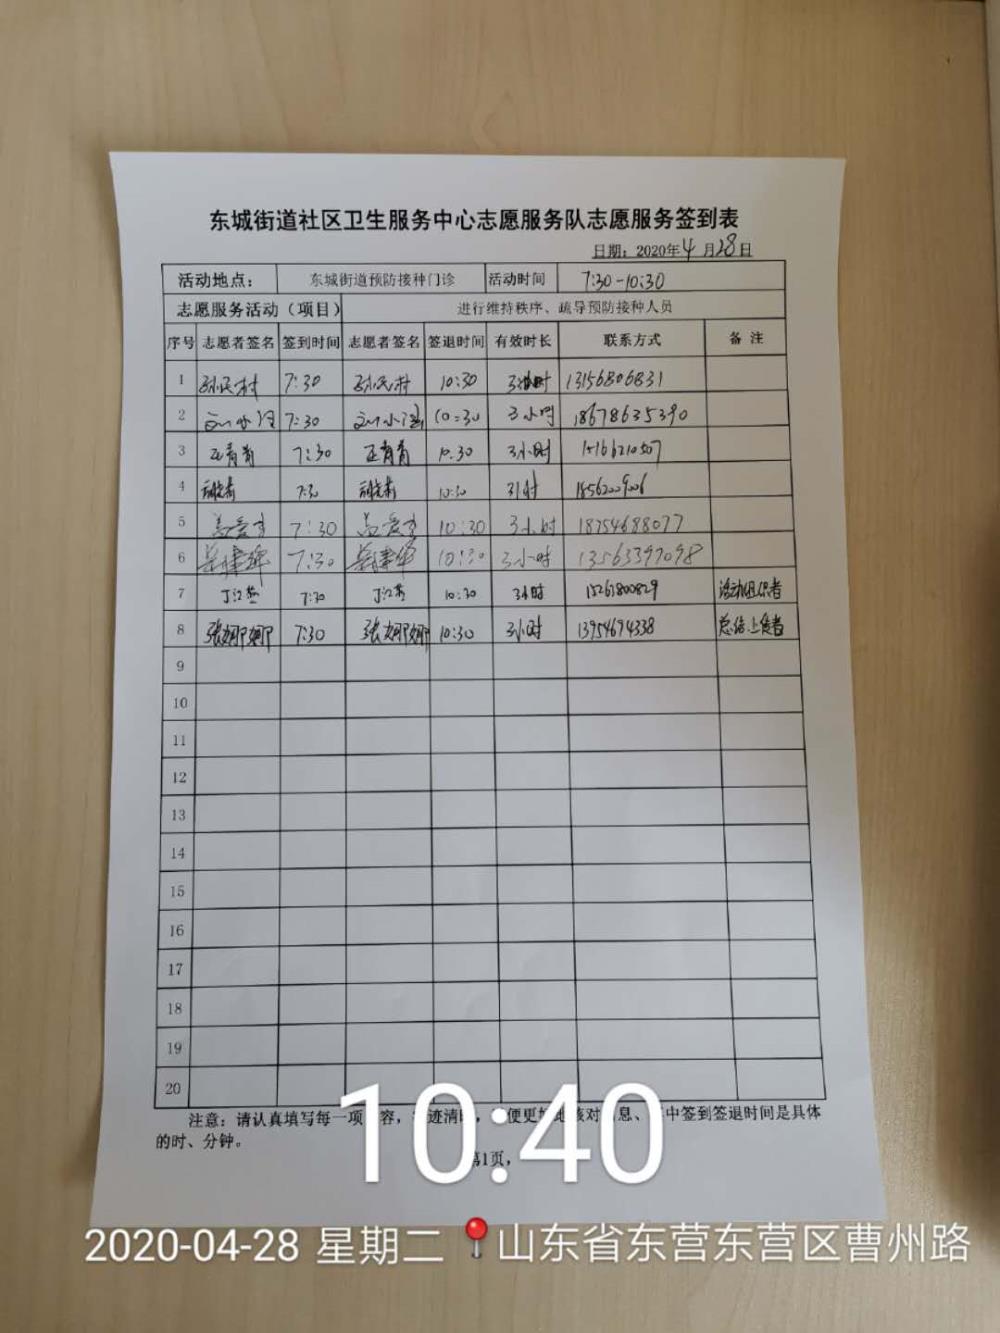 东城街道社区卫生服务中心志愿服务队志愿服务签到表
日期：2020年4月28日
活动地点： 东城街道预防接种门诊 活动时间 7:30-10:30
志愿服务活动（项目） 进行维持秩序、疏导预防接种人员
序号 志愿者签名 签到时间 志愿者签名 签退时间 有效时长 联系方式 备注
1 7:30 10:30 3小时 13156806831
2 7:30 10:30 3小时 18678635390
3 7:30 10.30 3小时
4 7:30 10:30
5 7:30 10:30 3小时 18754688077
6 7:30 10:30 3小时 13563397098
7 7:30 10:30 3小时 15263800829 活动组织者
8 张娜娜 7:30 张娜娜 10:30 3小时 13954694338 总结上传者
9
10
11
12
13
14
15
16
17
18
19
20
注意：请认真填写每一项 容， 迹清 ， 便更 核对 息、 中签到签退时间是具体
的时、分钟。
第1页，
10:40
2020-04-28 星期二 山东省东营东营区曹州路